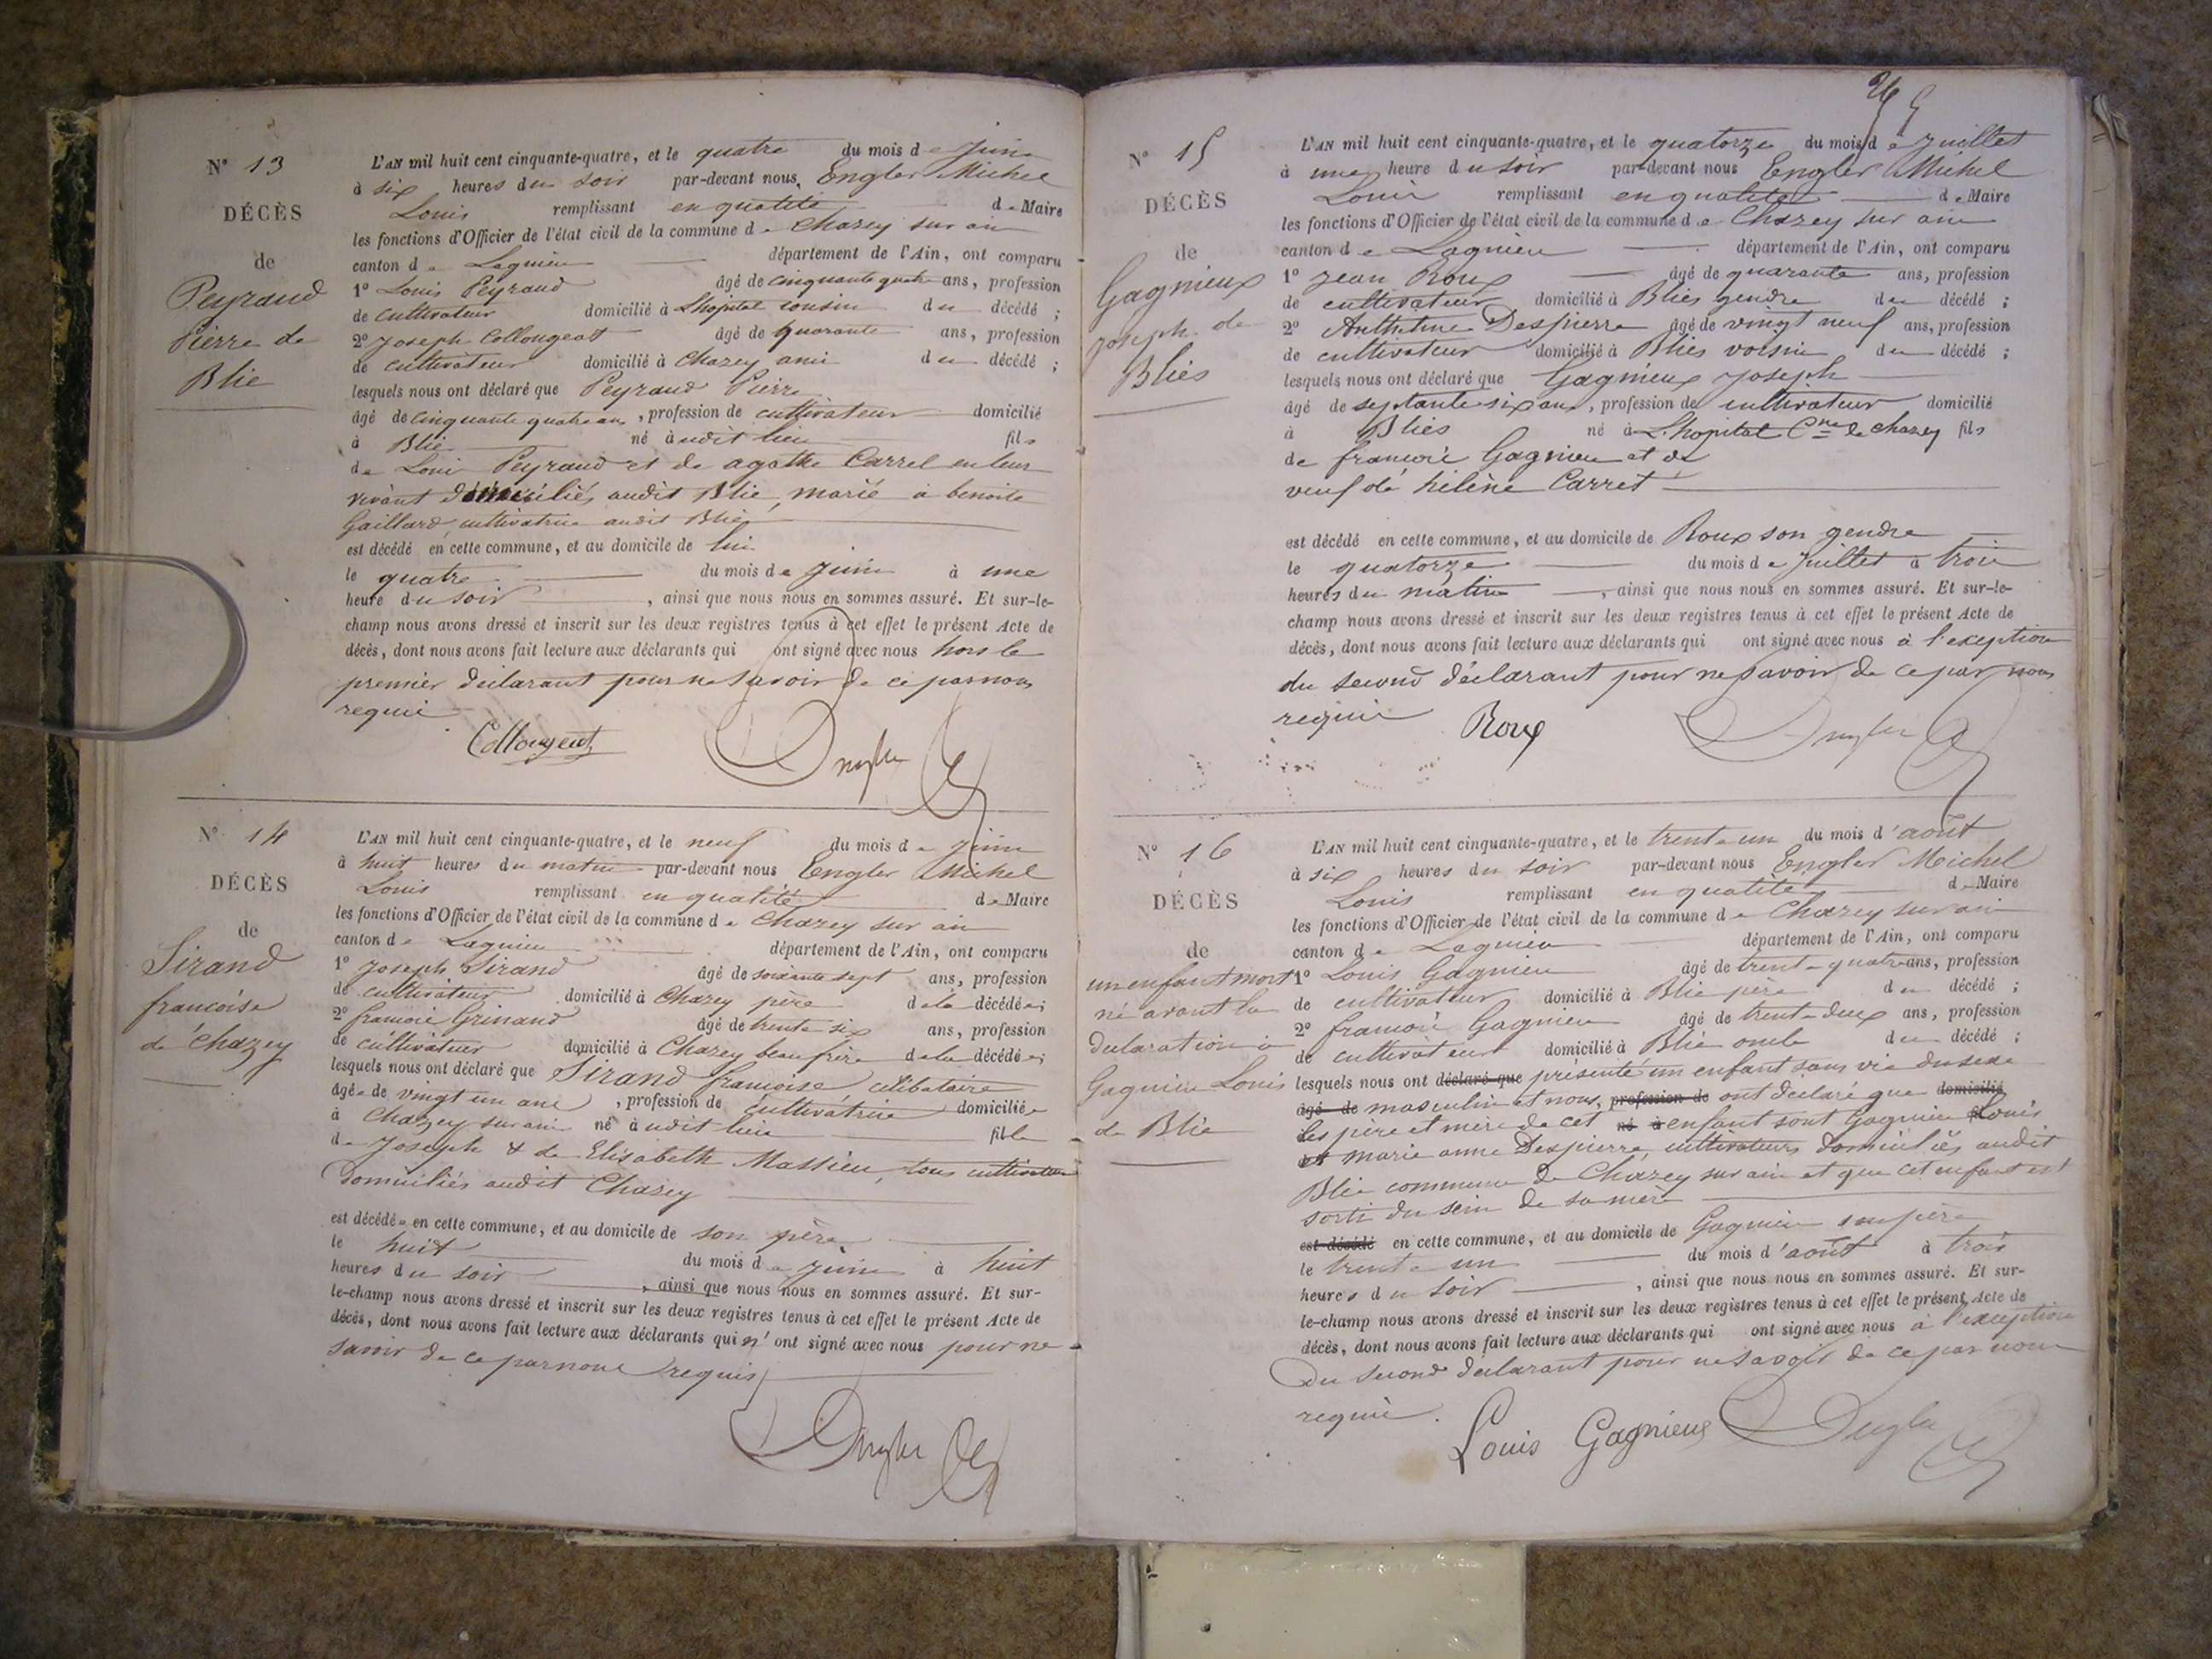 N° 13
DÉCÈS
de
Peyraud
Pierre de
Blie
L'AN mil huit cent cinquante-quatre, et le quatre du mois de Juin
à six heures du soir par-devant nous Engler Michel
Louis remplissant en qualité de Maire
les fonctions d'Officier de l'état civil de la commune de Chazey sur ain
canton de Lagnieu département de l'Ain, ont comparu
1° Louis Peyraud âgé de cinquante quatre ans, profession
de cultivateur domicilié à Lhopital cousin du décédé ;
2° Joseph Collongeat âgé de quarante ans, profession
de cultivateur domicilié à Chazey ami du décédé ;
lesquels nous ont déclaré que Peyraud Pierre
âgé de cinquante quatre ans, profession de cultivateur domicilié
à Blie né à udit lieu fils
de Louis Peyraud et de agathe Carrel en leur
vivant domiciliés audit Blie, marié a benoite
Gaillard, cultivatrice audit Blie
est décédé en cette commune, et au domicile de lui
le quatre du mois de Juin à une
heure du soir, ainsi que nous nous en sommes assuré. Et sur-le-
champ nous avons dressé et inscrit sur les deux registres tenus à cet effet le présent Acte de
décès, dont nous avons fait lecture aux déclarants qui ont signé avec nous hors le
premier déclarant pour ne savoir de ce par nous
requis
Collongeat Engler
N° 14
DÉCÈS
de
Sirand
francoise
de Chazey
L'AN mil huit cent cinquante-quatre, et le neuf du mois de Juin
à huit heures du matin par-devant nous Engler Michel
Louis remplissant en qualité de Maire
les fonctions d'Officier de l'état civil de la commune de Chazey sur ain
canton de Lagnieu département de l'Ain, ont comparu
1° Joseph Sirand âgé de soixante sept ans, profession
de cultivateur domicilié à Chazey père de la décédée;
2° francois Grinand âgé de trente six ans, profession
de cultivateur domicilié à Chazey beau frère de la décédée;
lesquels nous ont déclaré que Sirand francoise célibataire
âgée de vingt un ans, profession de cultivatrice domiciliée
à Chazey sur ain né à udit lieu fille
de Joseph & de Elisabeth Massieu, tous cultivateurs
domiciliés audit Chazey
est décédée en cette commune, et au domicile de son père
le huit du mois de juin à huit
heures du soir, ainsi que nous nous en sommes assuré. Et sur-
le-champ nous avons dressé et inscrit sur les deux registres tenus à cet effet le présent Acte de
décès, dont nous avons fait lecture aux déclarants qui n'ont signé avec nous pour ne
savoir de ce par nous requis
Engler
N° 15
DÉCÈS
de
Gagnieux
joseph de
Bliès
L'AN mil huit cent cinquante-quatre, et le quatorze du mois de Juillet
à une heure du soir par-devant nous Engler Michel
Louis remplissant en qualité de Maire
les fonctions d'Officier de l'état civil de la commune de Chazey sur ain
canton de Lagnieu département de l'Ain, ont comparu
1° Jean Roux âgé de quarante ans, profession
de cultivateur domicilié à Bliès gendre du décédé ;
2° Anthelme Despierre âgé de vingt neuf ans, profession
de cultivateur domicilié à Bliès voisin du décédé ;
lesquels nous ont déclaré que Gagnieux Joseph
âgé de septante six ans, profession de cultivateur domicilié
à Bliès né à L'hopital Cne de chazey fils
de francois Gagnieu et de
veuf de hélène Carret
est décédé en cette commune, et au domicile de Roux son gendre
le quatorze du mois de Juillet à trois
heures du matin, ainsi que nous nous en sommes assuré. Et sur-le-
champ nous avons dressé et inscrit sur les deux registres tenus à cet effet le présent Acte de
décès, dont nous avons fait lecture aux déclarants qui ont signé avec nous à l'exeption
du second déclarant pour ne savoir de ce par nous
requis
Roux Engler
N° 16
DÉCÈS
de
un enfant mort
né avant la
déclaration à
Gagnieu Louis
de Blie
L'AN mil huit cent cinquante-quatre, et le trente un du mois d'août
à six heures du soir par-devant nous Engler Michel
Louis remplissant en qualité de Maire
les fonctions d'Officier de l'état civil de la commune de Chazey sur ain
canton de Lagnieu département de l'Ain, ont comparu
1° Louis Gagnieu âgé de trente quatre ans, profession
de cultivateur domicilié à Blie père du décédé ;
2° francois Gagnieu âgé de trente deux ans, profession
de cultivateur domicilié à Blie oncle du décédé ;
lesquels nous ont déclaré que présenté un enfant sans vie du sexe
âgé de masculin et nous, profession de ont déclaré que domicilié
les père et mère de cet né à enfant sont Gagnieu Louis
et marie anne Despierre, cultivateurs domiciliés audit
Blie commune de Chazey sur ain et que cet enfant est
sorti du sein de sa mère
est décédé en cette commune, et au domicile de Gagnieu son père
le trente un du mois d'août à trois
heures du soir, ainsi que nous nous en sommes assuré. Et sur-
le-champ nous avons dressé et inscrit sur les deux registres tenus à cet effet le présent Acte de
décès, dont nous avons fait lecture aux déclarants qui ont signé avec nous à l'exception
du second déclarant pour ne savoir de ce par nous
requis.
Louis Gagnieux Engler